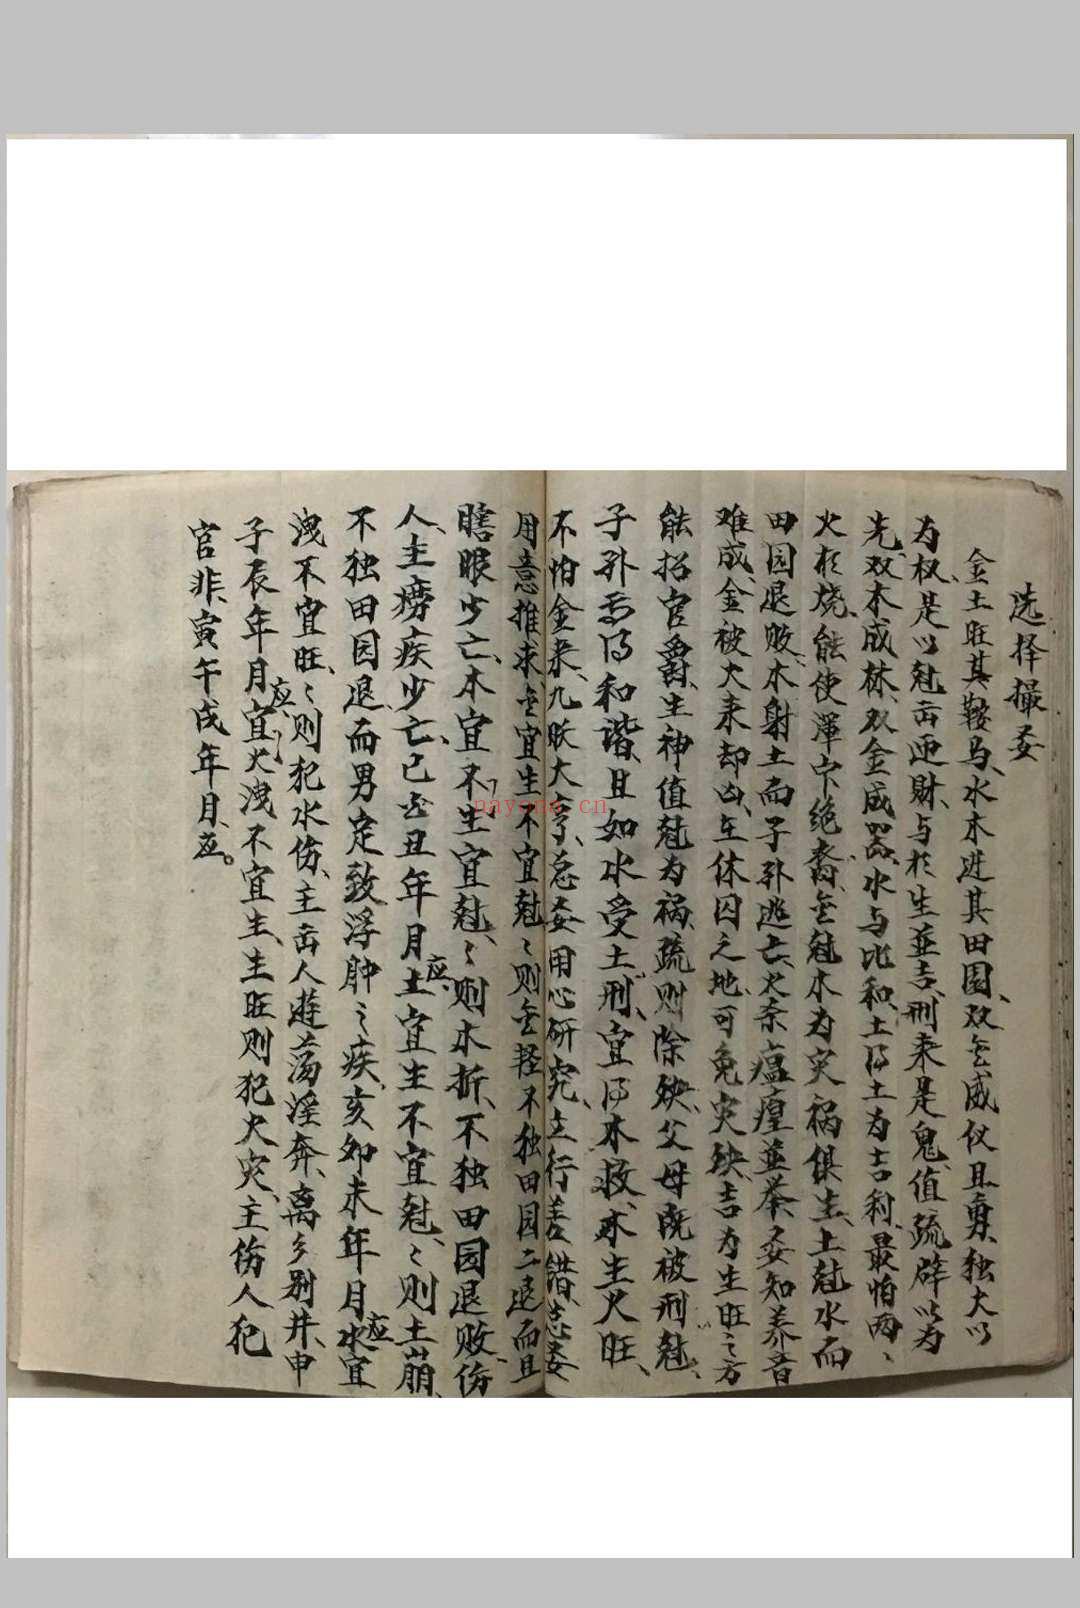 选择撮要
金土旺其鞍马、水木进其田园、双金威仪且勇、独火以
为权、是以尅出迎财、与於生並吉、刑来是鬼、值疏辟以为
先、双木成林、双金成器、水与比和、土得土为吉利、最怕两〻
火相烧、能使浑家绝裔、金尅木为灾祸俱生、土尅水而
田园退败、木射土而子孙逃亡、火杀瘟㾮並举、要知养音
难成、金被火来却凶、在休囚之地、可免灾殃、吉为生旺之方
能招官爵、生神值尅为祸、疏则除殃、父母既被刑尅、
子孙焉得和谐、且如水受土刑、宜得木救、木生火旺、
不怕金来、九 大亨、总要用心研究、立行差错、总要
用意推求、金宜生不宜尅〻则金轻不独田园二退而且
瞎眼少亡、木宜不生宜尅、〻则木折、不独田园退败、伤
人、主痨疾少亡、巳酉丑年月应、土宜生不宜尅、〻则土崩、
不独田园退、而男定致浮肿之疾、亥卯未年月应、水宜
洩不宜旺、〻则犯水伤、主出人遊荡淫奔、离乡别井、申
子辰年月应、宜火洩不宜生、生旺则犯火灾、主伤人犯
官非、寅午戌年月、应。
nayona.cn